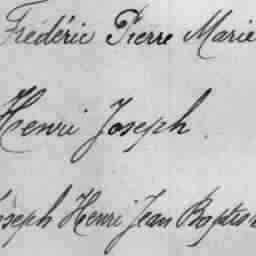 Frédéric Pierre Marie
Henri Joseph
Joseph Henri Jean Baptiste